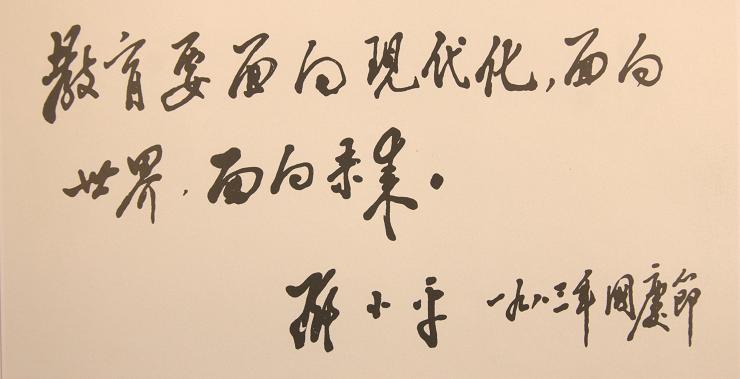 教育要面向現代化，面向
世界，面向未来。
邓小平 一九八三年國慶節